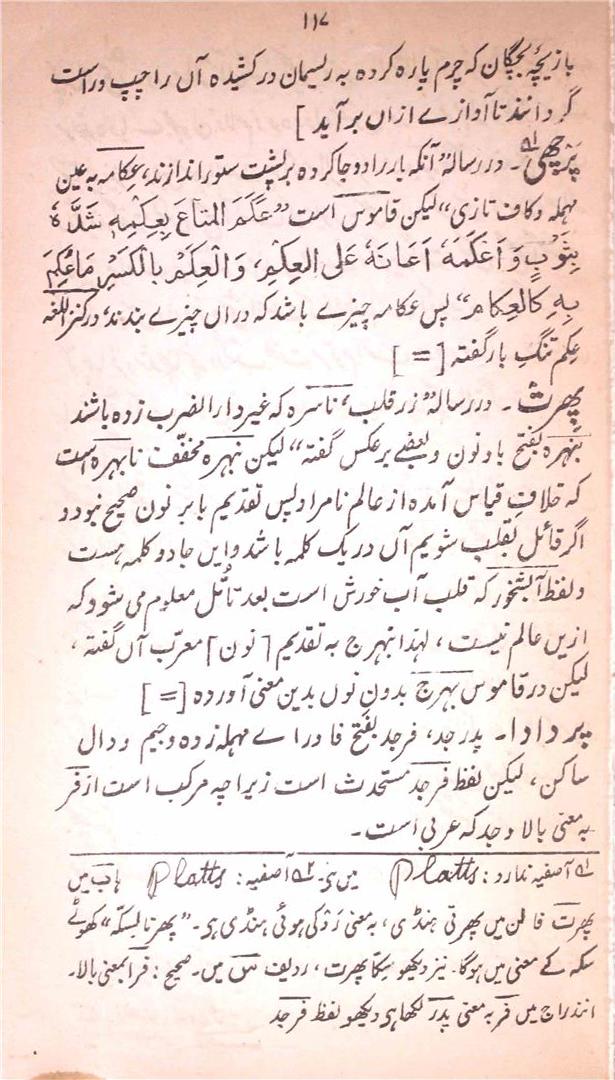 ۱۱۷
بازیچۂ بچگان که چرم پاره کرده به ریسمان در کشیده آں را چپ و راست
گردانند تا آوازے ازاں برآید ]
پرچھی۱ـه ۔ در رساله ”آنکه بار را دو جا کرده بر پشت ستور اندازند، عکامه به عین
مهمله و کاف تازی“ لیکن قاموس است ”عَکَمَ المَتاعَ بِعِکمِهٖ شَدَّہٗ
بِثَوْبٍ وَ اَعْکَمَهٗ اَعَانَهٗ عَلَی العِکمِ، وَ الْعِکَمْ بِالْکَسْرِ مَا عُکِمَ
بِهٖ کَالعِکامِ“ پس عکامه چیزے باشد که دراں چیزے بندند، در کنز اللغه
عکم تنگِ بار گفته [=]
پھرت ۔ در رساله ”زر قلب، ناسره که غیر دار الضرب زده باشند
بنهره بفتح با و نون و بعضے برعکس گفته“ لیکن نبهره مخفّف نابهره است
که خلافِ قیاس آمده از عالم نامراد پس تقدیم با بر نون صحیح نبود و
اگر قائل بقلب شویم آں در یک کلمه باشد و ایں جا دو کلمه هست
و لفظ آبشخور که قلب آب خورش است بعد تأمل معلوم می شود که
ازیں عالم نیست، لهذا نبهرج به تقدیم [نون] معرّب آں گفته،
لیکن در قاموس بهرج بدونِ نوں بدیں معنی آورده [=]
پر دادا ۔ پدر جد، فرجد بفتح فا و راے مهمله زده و جیم و دال
ساکن، لیکن لفظ فرجد مستحدث است زیراچه مرکب است از فر
به معنی بالا و جد که عربی است ۔
۱ـه آصفیه ندارد : Platts میں ہی۔ ۲ـه آصفیه : Platts باب میں
پھرت فا لن میں پھرتی ہنڈی، به معنی رد کی ہوئی ہنڈی ہی۔ ”پھرتا لسکّه“ کھوٹے
سکه کے معنی میں ہوگا۔ نیز دیکھو سکّا پھرت، ردیف س میں۔ صحیح : فرا بمعنی بالا۔
انندراج میں فر به معنی پدر لکھا ہی دیکھو لفظ فرجد